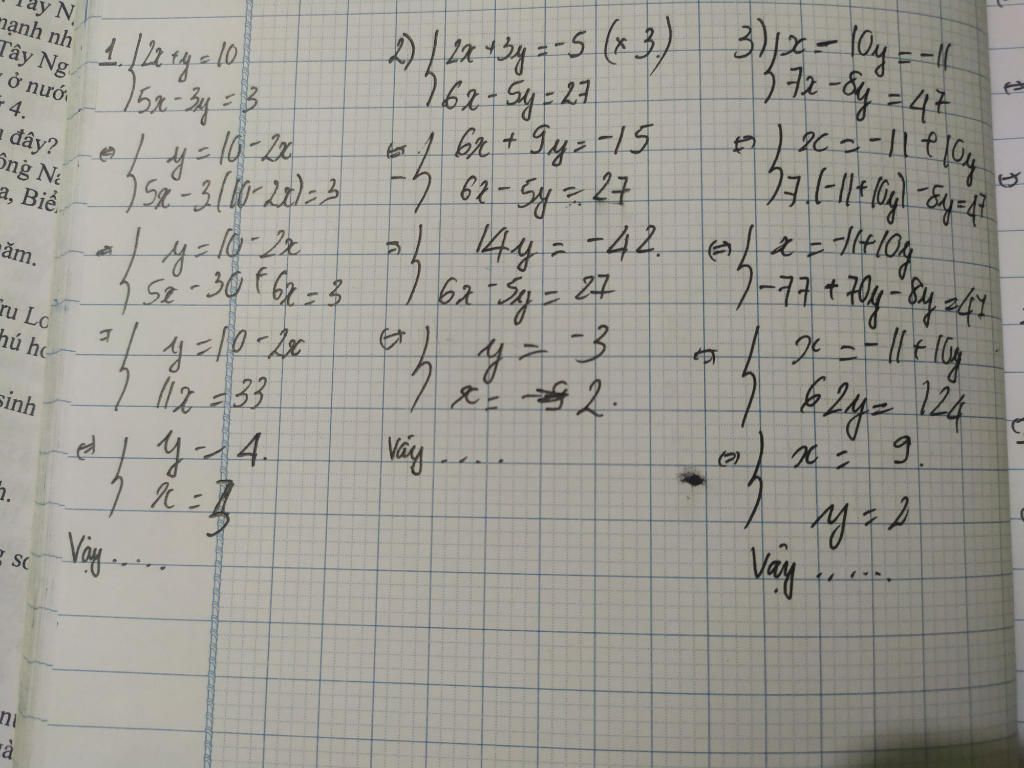 Tây N
mạnh nh
Tây Ng
ở nướ
4.
đây?
ông Na
a, Biể
năm.
ưu Lo
hú họ
sinh
h.
g so
1. 2x+y=10
5x-3y=3
⇔ y=10-2x
5x-3(10-2x)=3
y=10-2x
5x-30+6x=3
y=10-2x
11x=33
⇔ y=4.
x=3
Vậy .....
2) 2x+3y=-5 (×3)
6x-5y=27
⇔ 6x+9y=-15
- 6x-5y=27
14y=-42.
6x-5y=27
⇔ y=-3
x=2.
Vậy .....
3) x-10y=-11
7x-8y=47
⇔ x=-11+10y
7.(-11+10y)-8y=47
⇔ x=-11+10y
-77+70y-8y=47
⇔ x=-11+10y
62y=124
⇔ x=9.
y=2
Vậy ......